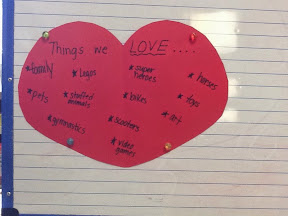 Things we LOVE....
*family
*Legos
*super heroes
*horses
*pets
*stuffed animals
*bikes
*toys
*art
*gymnastics
*scooters
*video games